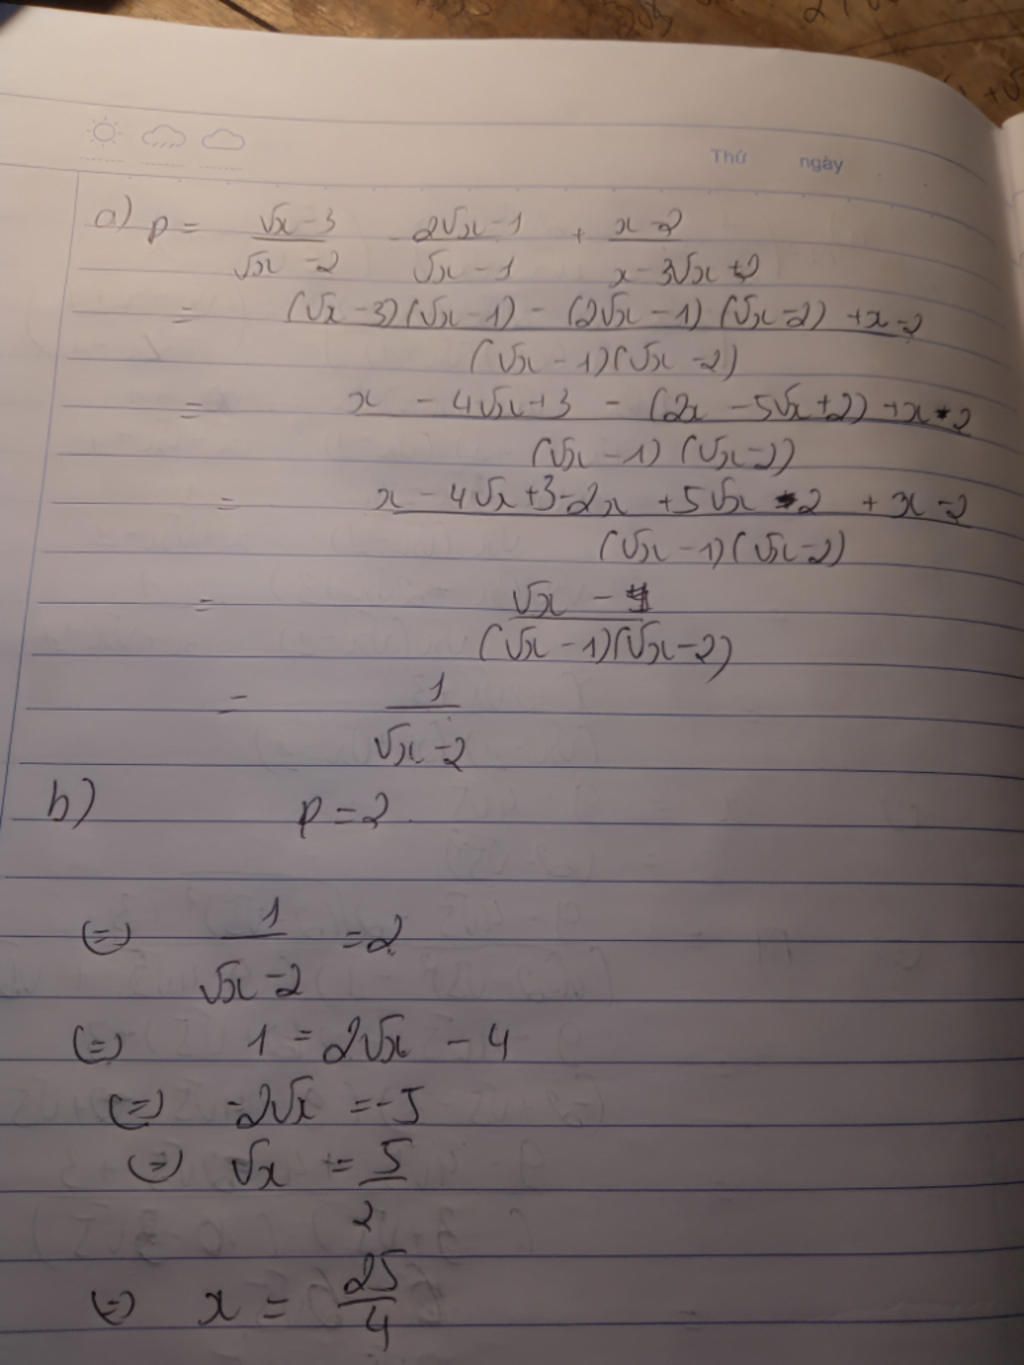 Thứ ngày
a) P = \frac{\sqrt{x}-3}{\sqrt{x}-2} \frac{2\sqrt{x}-1}{\sqrt{x}-1} + \frac{x-2}{x-3\sqrt{x}+2}
= \frac{(\sqrt{x}-3)(\sqrt{x}-1) - (2\sqrt{x}-1)(\sqrt{x}-2) + x-2}{(\sqrt{x}-1)(\sqrt{x}-2)}
= \frac{x - 4\sqrt{x}+3 - (2x - 5\sqrt{x}+2) + x-2}{(\sqrt{x}-1)(\sqrt{x}-2)}
= \frac{x - 4\sqrt{x}+3-2x + 5\sqrt{x} - 2 + x-2}{(\sqrt{x}-1)(\sqrt{x}-2)}
= \frac{\sqrt{x} - 1}{(\sqrt{x}-1)(\sqrt{x}-2)}
= \frac{1}{\sqrt{x}-2}
b) P = 2
(=) \frac{1}{\sqrt{x}-2} = 2
(=) 1 = 2\sqrt{x} - 4
(=) -2\sqrt{x} = -5
(=) \sqrt{x} = \frac{5}{2}
(=) x = \frac{25}{4}